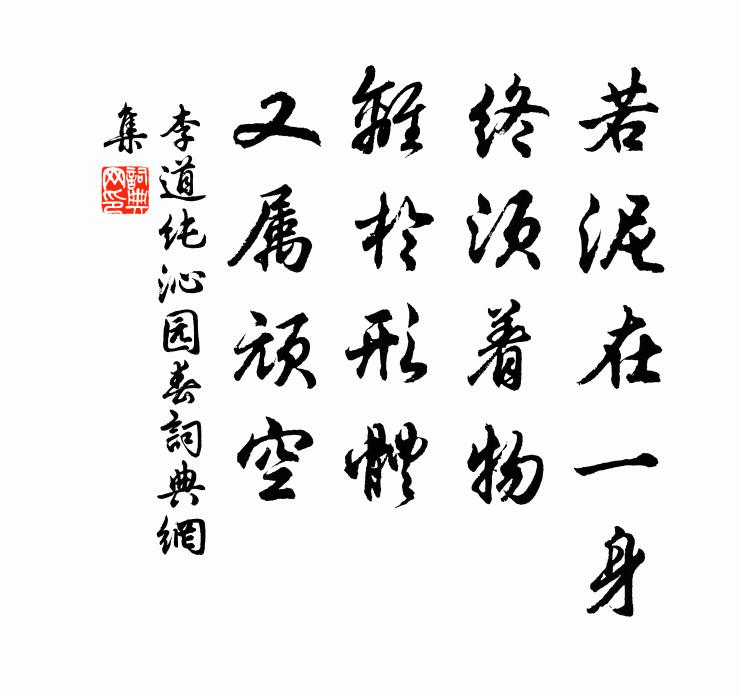 若泥在一身
终须着物
離於形體
又属顽空
李道纯沁园春詞典網
集
詞典
网印